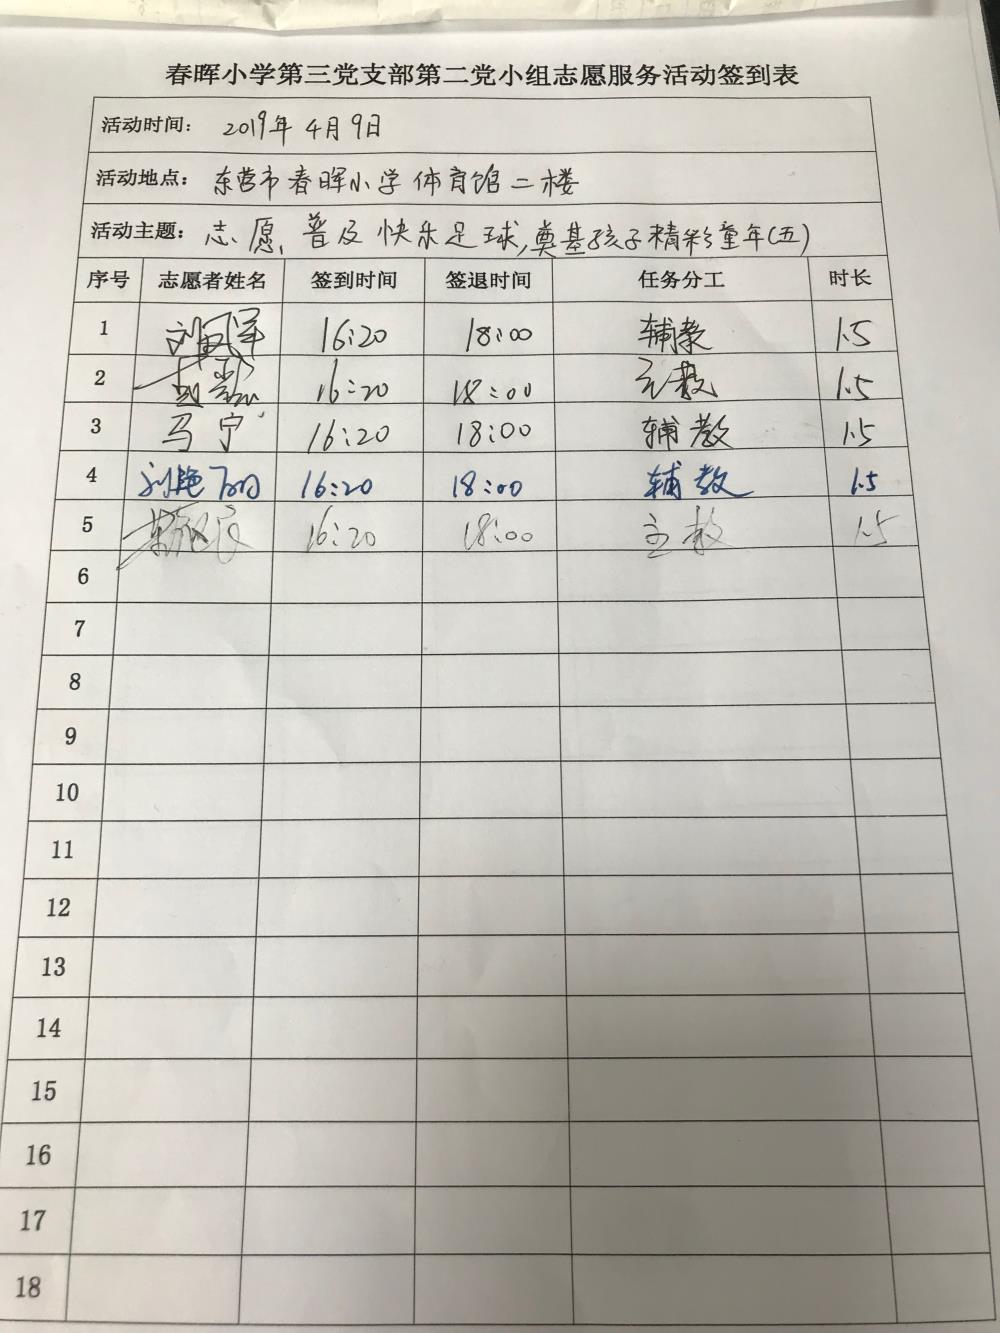 春晖小学第三党支部第二党小组志愿服务活动签到表
活动时间: 2019年4月9日
活动地点: 东营市春晖小学体育馆二楼
活动主题: 志愿、普及快乐足球,奠基孩子精彩童年(五)
序号 志愿者姓名 签到时间 签退时间 任务分工 时长
1 16:20 18:00 辅教 1.5
2 16:20 18:00 主教 1.5
3 马宁 16:20 18:00 辅教 1.5
4 刘艳丽 16:20 18:00 辅教 1.5
5 16:20 18:00 主教 1.5
6
7
8
9
10
11
12
13
14
15
16
17
18